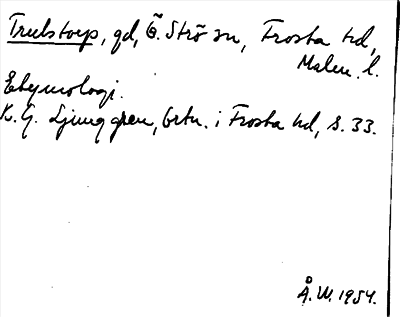 Trulstorp, gd, Ö. Strö sn, Frosta hd,
Malm. l.
Etymologi.
K. G. Ljunggren, Ortn. i Frosta hd, s. 33.
Å. W. 1954.